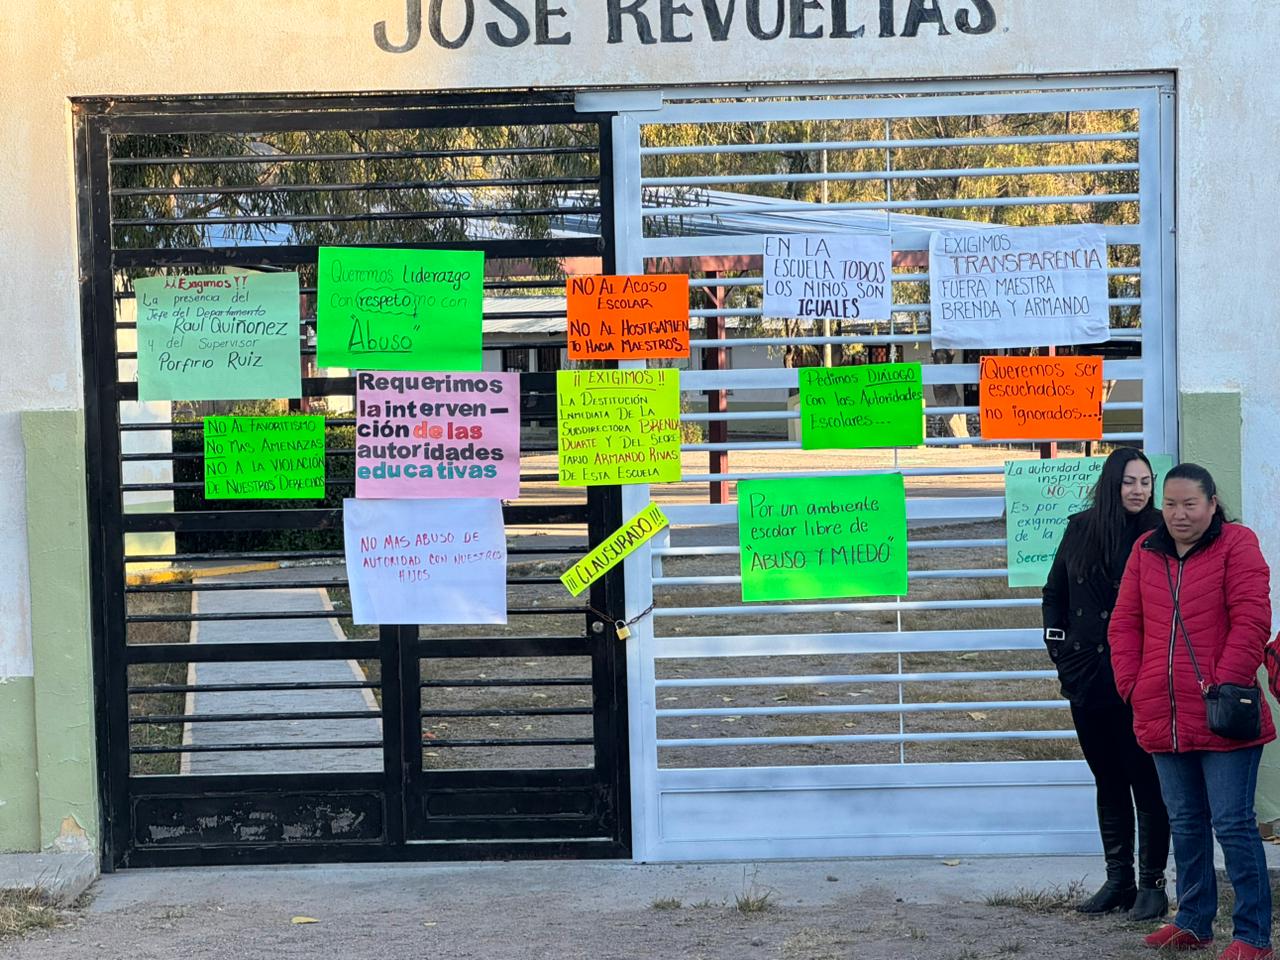 JOSÉ REVUELTAS
¡¡Exigimos!!
La presencia del
Jefe del Departamento
Raul Quiñonez
y del Supervisor
Porfirio Ruiz
Queremos Liderazgo
Con respeto no con
"Abuso"
NO AL ACOSO
ESCOLAR
NO AL HOSTIGAMIEN
TO HACIA MAESTROS...
EN LA
ESCUELA TODOS
LOS NIÑOS SON
IGUALES
EXIGIMOS
TRANSPARENCIA
FUERA MAESTRA
BRENDA Y ARMANDO
NO AL FAVORITISMO
NO MAS AMENAZAS
NO A LA VIOLACIÓN
DE NUESTROS DERECHOS
Requerimos
la interven-
ción de las
autoridades
educativas
¡¡ EXIGIMOS !!
LA DESTITUCIÓN
INMEDIATA DE LA
SUBDIRECTORA BRENDA
DUARTE Y DEL SECRE
TARIO ARMANDO RIVAS
DE ESTA ESCUELA
Pedimos DIÁLOGO
Con las Autoridades
Escolares...
¡Queremos ser
escuchados y
no ignorados...!
NO MAS ABUSO DE
AUTORIDAD CON NUESTROS
HIJOS
¡¡¡CLAUSURADO!!!
Por un ambiente
escolar libre de
"ABUSO Y MIEDO"
La autoridad de
inspirar
NO
Es por
exigimos
de la